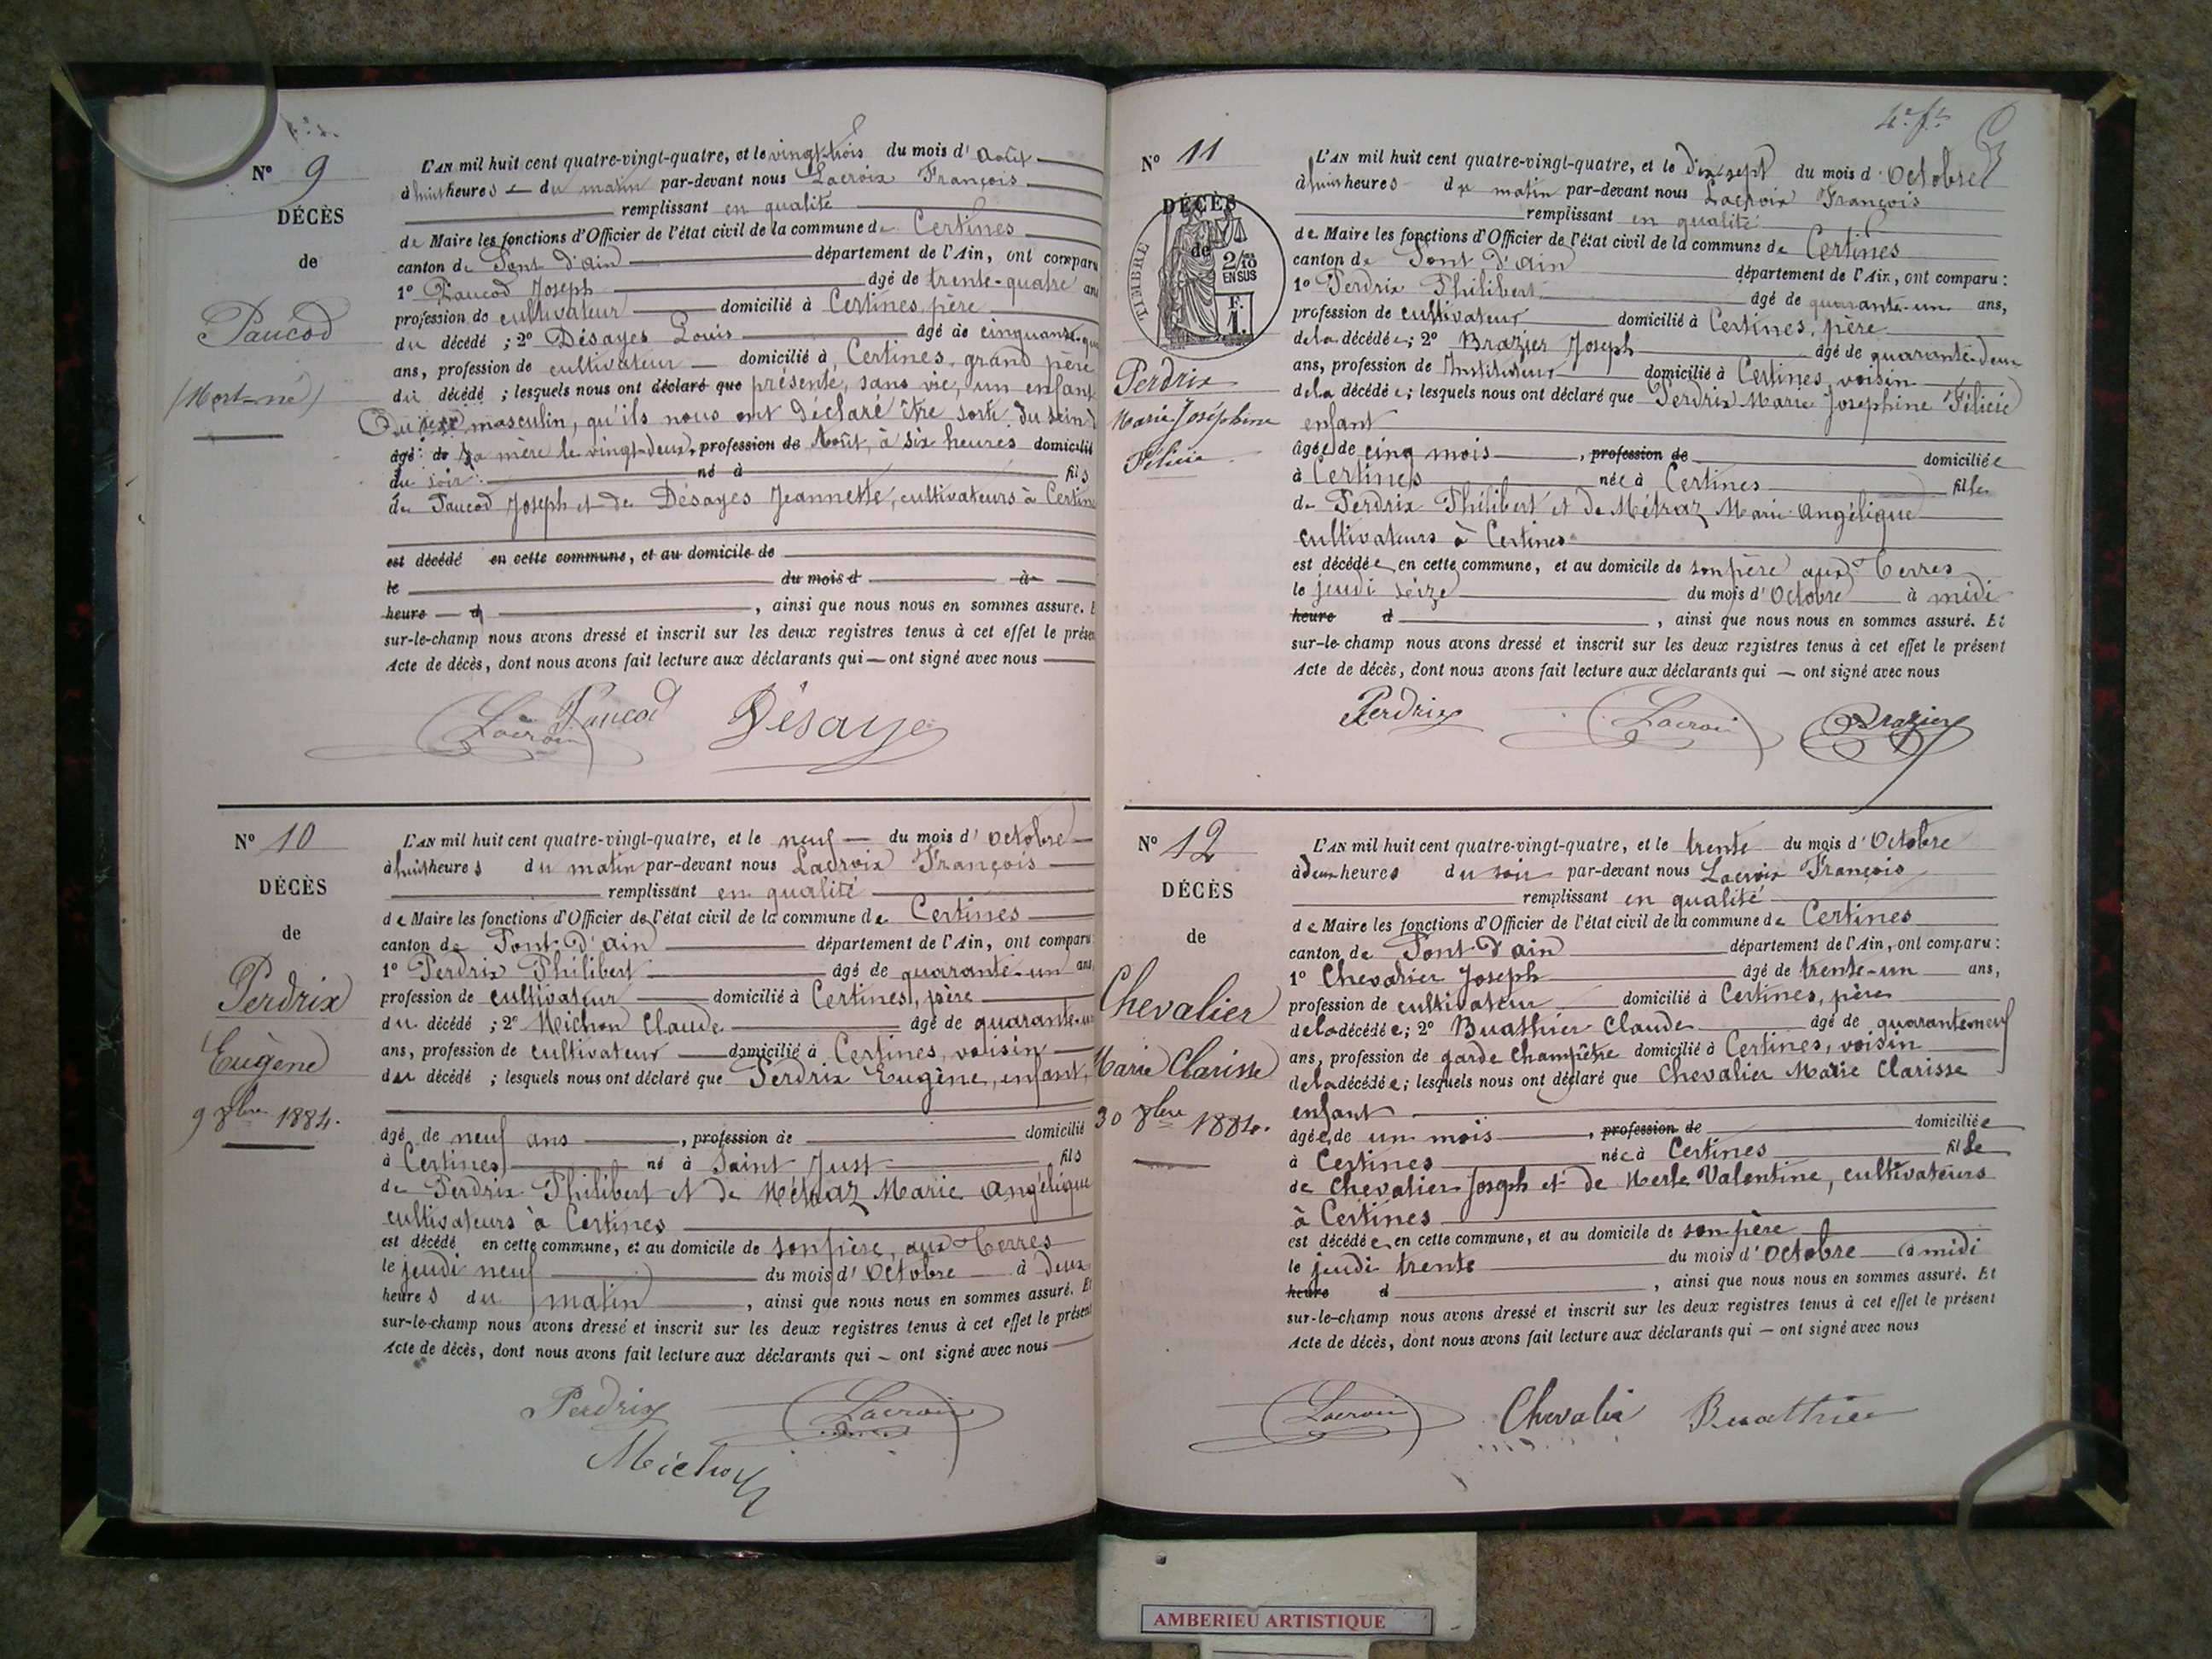 Nº 9
DÉCÈS
de
Paucod
(Mort-né)
L'AN mil huit cent quatre-vingt-quatre, et le vingt-trois du mois d'Août
à huit heures du matin par-devant nous Lacroix François
remplissant en qualité
de Maire les fonctions d'Officier de l'état civil de la commune de Certines
canton de Pont d'ain département de l'Ain, ont comparu
1º Paucod Joseph âgé de trente-quatre ans
profession de cultivateur domicilié à Certines, père
du décédé ; 2º Désayes Louis âgé de cinquante-
ans, profession de cultivateur domicilié à Certines, grand père
du décédé ; lesquels nous ont déclaré que présenté, sans vie, un enfant
Du sexe masculin, qu'ils nous ont déclaré être sorti du sein d
âgé de sa mère le vingt-deux, profession de Août, à six heures domicilié
du soir né à fils
de Paucod Joseph et de Désayes Jeannette, cultivateurs à Certines
est décédé en cette commune, et au domicile de
le du mois d à
heure d , ainsi que nous nous en sommes assuré. E
sur-le-champ nous avons dressé et inscrit sur les deux registres tenus à cet effet le présen
Acte de décès, dont nous avons fait lecture aux déclarants qui — ont signé avec nous
Lacroix Paucod Désaye
Nº 10
DÉCÈS
de
Perdrix
Eugène
9 8bre 1884.
L'AN mil huit cent quatre-vingt-quatre, et le neuf du mois d'octobre
à huit heures du matin par-devant nous Lacroix François
remplissant en qualité
de Maire les fonctions d'Officier de l'état civil de la commune de Certines
canton de Pont-d'ain département de l'Ain, ont comparu
1º Perdrix Philibert âgé de quarante-un ans
profession de cultivateur domicilié à Certines, père
du décédé ; 2º Michon Claude âgé de quarante-un
ans, profession de cultivateur domicilié à Certines, voisin
du décédé ; lesquels nous ont déclaré que Perdrix Eugène, enfant,
âgé de neuf ans , profession de domicilié
à Certines né à Saint Just , fils
de Perdrix Philibert et de Métraz Marie Angélique
cultivateurs à Certines
est décédé en cette commune, et au domicile de son père, aux Terres
le jeudi neuf du mois d'Octobre à deux
heures du matin , ainsi que nous nous en sommes assuré. Et
sur-le-champ nous avons dressé et inscrit sur les deux registres tenus à cet effet le présent
Acte de décès, dont nous avons fait lecture aux déclarants qui — ont signé avec nous
Perdrix Lacroix
Michon
4e ft
Nº 11
DÉCÈS
de
TIMBRE
2/10
EN SUS
F.
1.
Perdrix
Marie Joséphine
Félicie
L'AN mil huit cent quatre-vingt-quatre, et le dix-sept du mois d'Octobre
à huit heures du matin par-devant nous Lacroix François
remplissant en qualité
de Maire les fonctions d'Officier de l'état civil de la commune de Certines
canton de Pont d'ain département de l'Ain, ont comparu :
1º Perdrix Philibert âgé de quarante-un ans,
profession de cultivateur domicilié à Certines, père
de la décédée ; 2º Brazier Joseph âgé de quarante-deux
ans, profession de Instituteur domicilié à Certines, voisin
de la décédée ; lesquels nous ont déclaré que Perdrix Marie Josephine Félicie
enfant
âgée de cinq mois , profession de domiciliée
à Certines née à Certines fille
de Perdrix Philibert et de Métraz Marie Angélique
cultivateurs à Certines
est décédée en cette commune, et au domicile de son père aux Terres
le jeudi seize du mois d'Octobre à midi
heure d , ainsi que nous nous en sommes assuré. Et
sur-le-champ nous avons dressé et inscrit sur les deux registres tenus à cet effet le présent
Acte de décès, dont nous avons fait lecture aux déclarants qui — ont signé avec nous
Perdrix Lacroix Brazier
Nº 12
DÉCÈS
de
Chevalier
Marie Clarisse
30 8bre 1884.
L'AN mil huit cent quatre-vingt-quatre, et le trente du mois d'Octobre
à deux heures du soir par-devant nous Lacroix François
remplissant en qualité
de Maire les fonctions d'Officier de l'état civil de la commune de Certines
canton de Pont-d'ain département de l'Ain, ont comparu :
1º Chevalier Joseph âgé de trente-un ans,
profession de cultivateur domicilié à Certines, père
de la décédée ; 2º Buathier Claude âgé de quarante neuf
ans, profession de garde champêtre domicilié à Certines, voisin
de la décédée ; lesquels nous ont déclaré que Chevalier Marie Clarisse
enfant
âgée de un mois , profession de domiciliée
à Certines née à Certines fille
de Chevalier Joseph et de Merle Valentine, cultivateurs
à Certines
est décédée en cette commune, et au domicile de son père
le jeudi trente du mois d'Octobre à midi
heure d , ainsi que nous nous en sommes assuré. Et
sur-le-champ nous avons dressé et inscrit sur les deux registres tenus à cet effet le présent
Acte de décès, dont nous avons fait lecture aux déclarants qui — ont signé avec nous
Lacroix Chevalier Buathier
AMBERIEU ARTISTIQUE